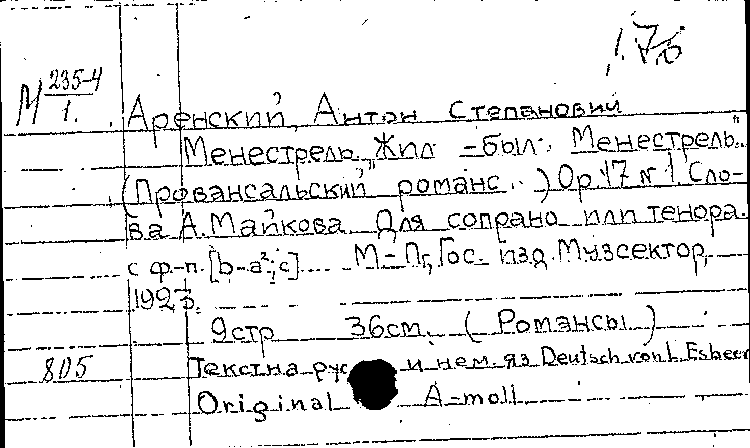 1.70
М 235-4
1.
Аренский, Антон Степанович
Менестрель „Жил-был. Менестрель".
(„Провансальский" романс..) Op.17 № 1. Сло-
ва А. Майкова. Для сопрано или тенора.
с ф-п. [b-a²; c] М-Пг, Гос. изд. Музсектор,
1923.
9 стр 36 см. (Романсы)
805
Текст на рус и нем. яз Deutsch von L. Esbeer
Original A-moll